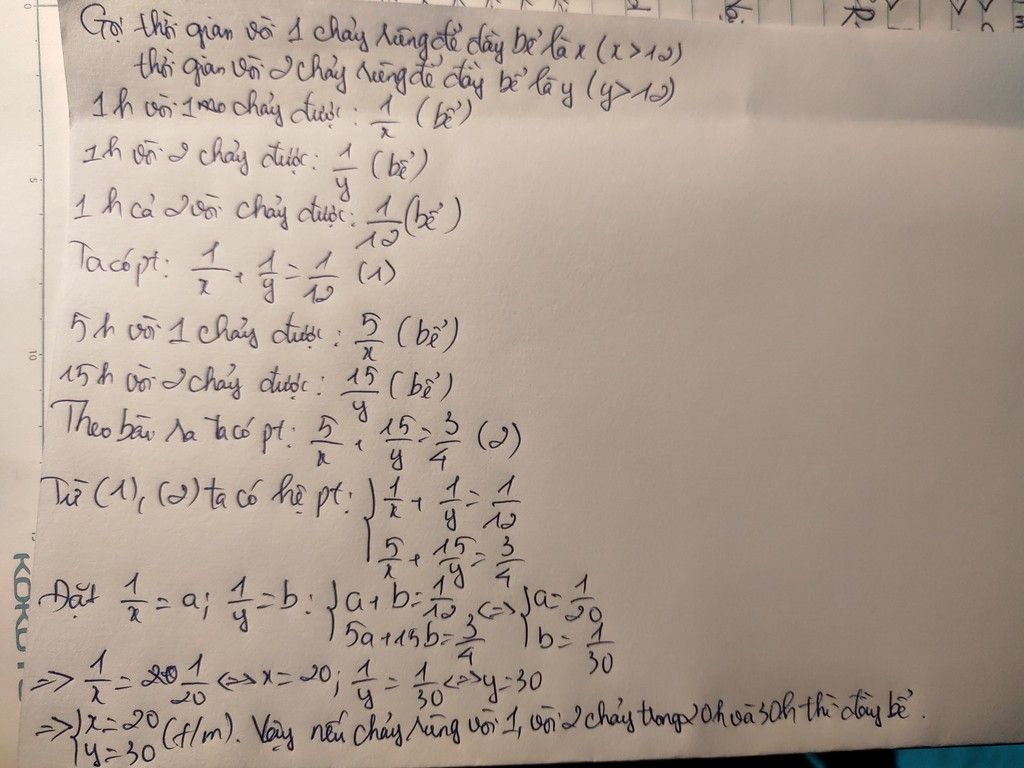 Gọi thời gian vòi 1 chảy riêng để đầy bể là x (x > 12)
thời gian vòi 2 chảy riêng để đầy bể là y (y > 12)
1h vòi 1 chảy được: 1/x (bể)
1h vòi 2 chảy được: 1/y (bể)
1h cả 2 vòi chảy được: 1/12 (bể)
Ta có pt: 1/x + 1/y = 1/12 (1)
5h vòi 1 chảy được: 5/x (bể)
15h vòi 2 chảy được: 15/y (bể)
Theo bài ra ta có pt: 5/x + 15/y = 3/4 (2)
Từ (1), (2) ta có hệ pt: { 1/x + 1/y = 1/12
5/x + 15/y = 3/4
Đặt 1/x = a; 1/y = b: { a + b = 1/12 <=> { a = 1/20
5a + 15b = 3/4 b = 1/30
=> 1/x = 1/20 <=> x = 20; 1/y = 1/30 <=> y = 30
=> { x = 20 (t/m). Vậy nếu chảy riêng vòi 1, vòi 2 chảy trong 20h và 30h thì đầy bể.
y = 30
5
10
KOKU